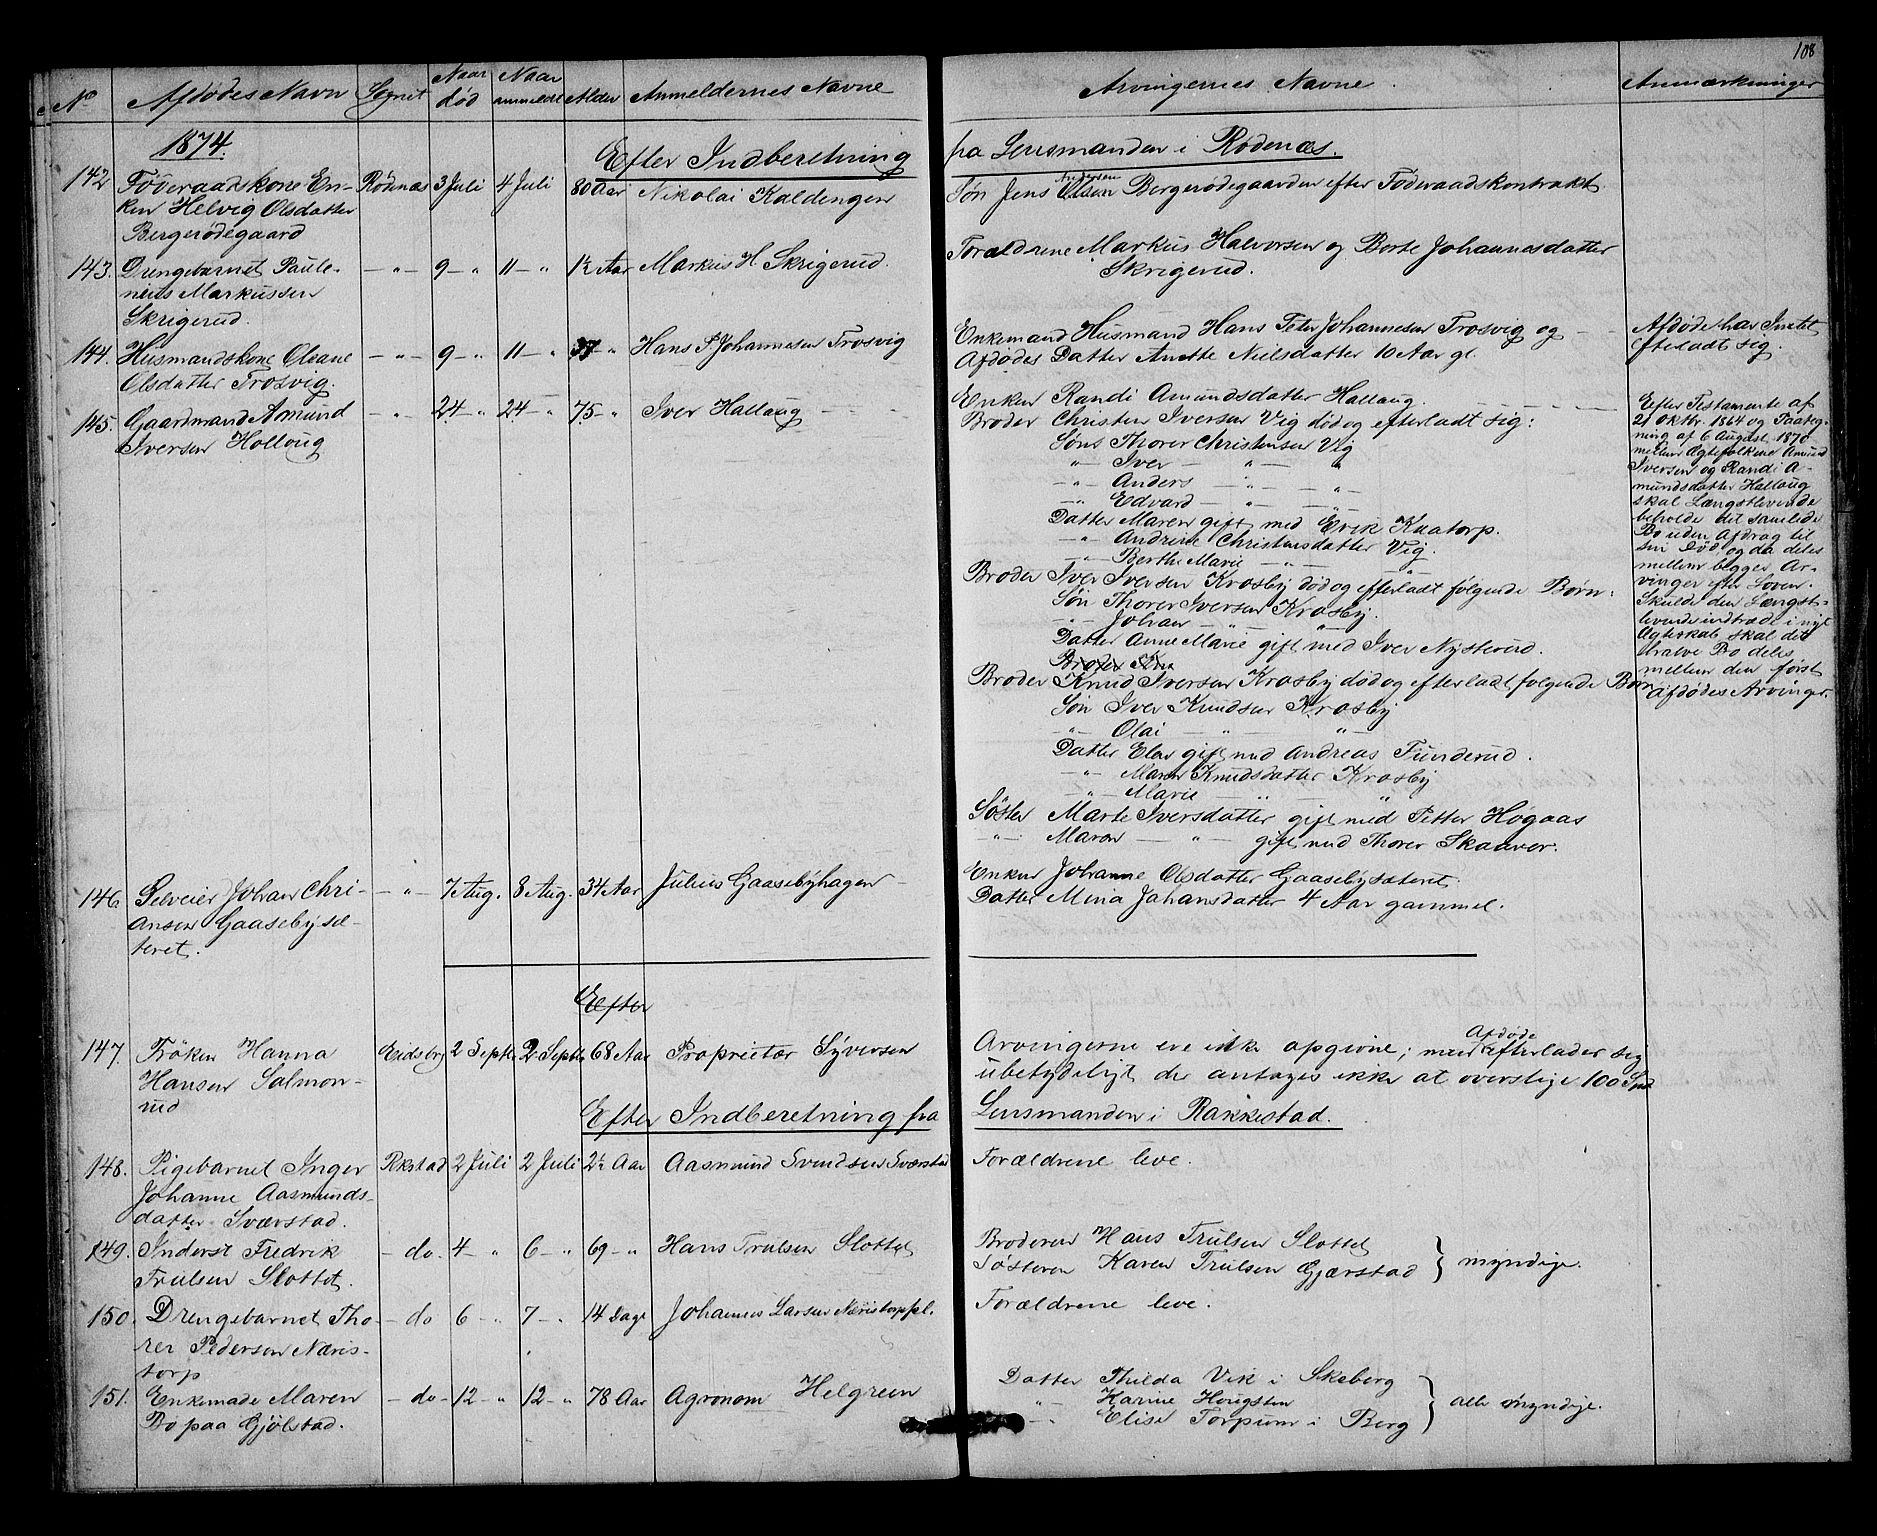 108
No Afdødes Navn Sognet Naar død Naar anmeldt Alder Anmeldernes Navne Arvingernes Navne Anmærkninger
1874.
Efter Indberetning fra Lensmanden i Rødenæs.
142 Føderaadskone En- Rødnæs 3 Juli 4 Juli 80 Aar Nikolai Kaldengen
ken Helvig Olsdatter
Bergerødegaard
Søn Jens Andersen Bergerødegaarden efter Føderaadskontrakt
143. Drengebarnet Paule- —"— 9—" 11—" 1½ Aar Markus H Skrigerud.
nius Markussen
Skrigerud.
Forældrene Markus Halvorsen og Berte Johannesdatter
Skrigerud.
144. Husmandskone Oleane —"— 9—" 11—" 37—" Hans P Johannesen Trosvig
Olsdatter Trosvig.
Enkemand Husmand Hans Peter Johannesen Trosvig og
Afdødes Datter Anette Nielsdatter 10 Aar gl.
Afdøde har Intet
efterladt sig.
145. Gaardmand Amund —"— 24—" 24—" 75—" Iver Hallaug
Iversen Hollaug
Enken Randi Amundsdatter Hallaug.
Broder Christen Iversen Vig død og efterladt sig:
Søns Thorer Christensen Vig
—"— Iver —"— "
—"— Anders —"— —"—
—"— Edvard —"— —"—
Datter Maren gift med Erik Kaatorp.
—"— Andrine Christensdatter Vig.
—"— Berthe Marie —"— —"—
Broder Iver Iversen Krosby død og efterladt følgende Børn:
Søn Thorer Iversen Krosby.
—"— Johan —"— "
Datter Anne Marie gift med Iver Nysterud.
Broder
Broder Knud Iversen Krosby død og efterladt følgende Børn
Søn Iver Knudsen Krosby
—"— Olai —"— —"—
Datter Elen gift med Andreas Funderud.
—"— Maren Knudsdatter Krosby
—"— Marie —"— "
Søster Marte Iversdatter gift med Petter Høgaas
—"— Maren —"— gift med Thorer Skauver.
Efter Testamente af
21 Oktbr. 1864 og Paateg-
ning af 6 August 1870
mellem Ægtefolkene Amund
Iversen og Randi A-
mundsdatter Hallaug
skal Længstlevende
beholde det samlede
Bo uden Afdrag til
sin Død og da deles
mellem begges Ar-
vinger efter Loven.
Skulde den Længst-
levende indtræde i nyt
Ægteskab skal det
halve Bo deles
mellem den først
Afdødes Arvinger.
146. Selveier Johan Chri- —"— 7 Aug. 8 Aug. 34 Aar Julius Gaasebyhagen
ansen Gaasebysæ-
teret.
Enken Johanne Olsdatter Gaasebysæteret.
Datter Mina Johansdatter 4 Aar gammel.
Efter
147. Frøken Hanna Eidsbrg 2 Septr 2 Septr 68 Aar Proprietær Syversen
Hansen Salmon-
rud
Arvingerne ere ikke opgivne; men Afdøde efterlader sig
ubetydeligt der antages ikke at overstige 100 Spd
Efter Indberetning fra Lensmanden i Rakkestad.
148. Pigebarnet Inger Rkstad 2 Juli 2 Juli 2½ Aar Aasmund Svendsen Sværstad
Johanne Aasmunds-
datter Sværstad.
Forældrene leve.
149. Inderst Fredrik —do. 4—" 6—" 69—" Hans Trulsen Slottet
Trulsen Slottet.
Broderen Hans Trulsen Slottet
Søsteren Karen Trulsen Gjærstad } myndige.
150. Drengebarnet Tho- —do 6—" 7—" 14 Dage Johannes Larsen Næristorppl.
rer Pedersen Næris-
torp
Forældrene leve.
151. Enkemade Maren —do— 12—" 12—" 78 Aar Agronom Helgreen
Bo paa Gjølstad.
Datter Thilda Vik i Skeberg
—"— Karine Hougsten
—"— Elise Torpum i Berg } alle myndige.